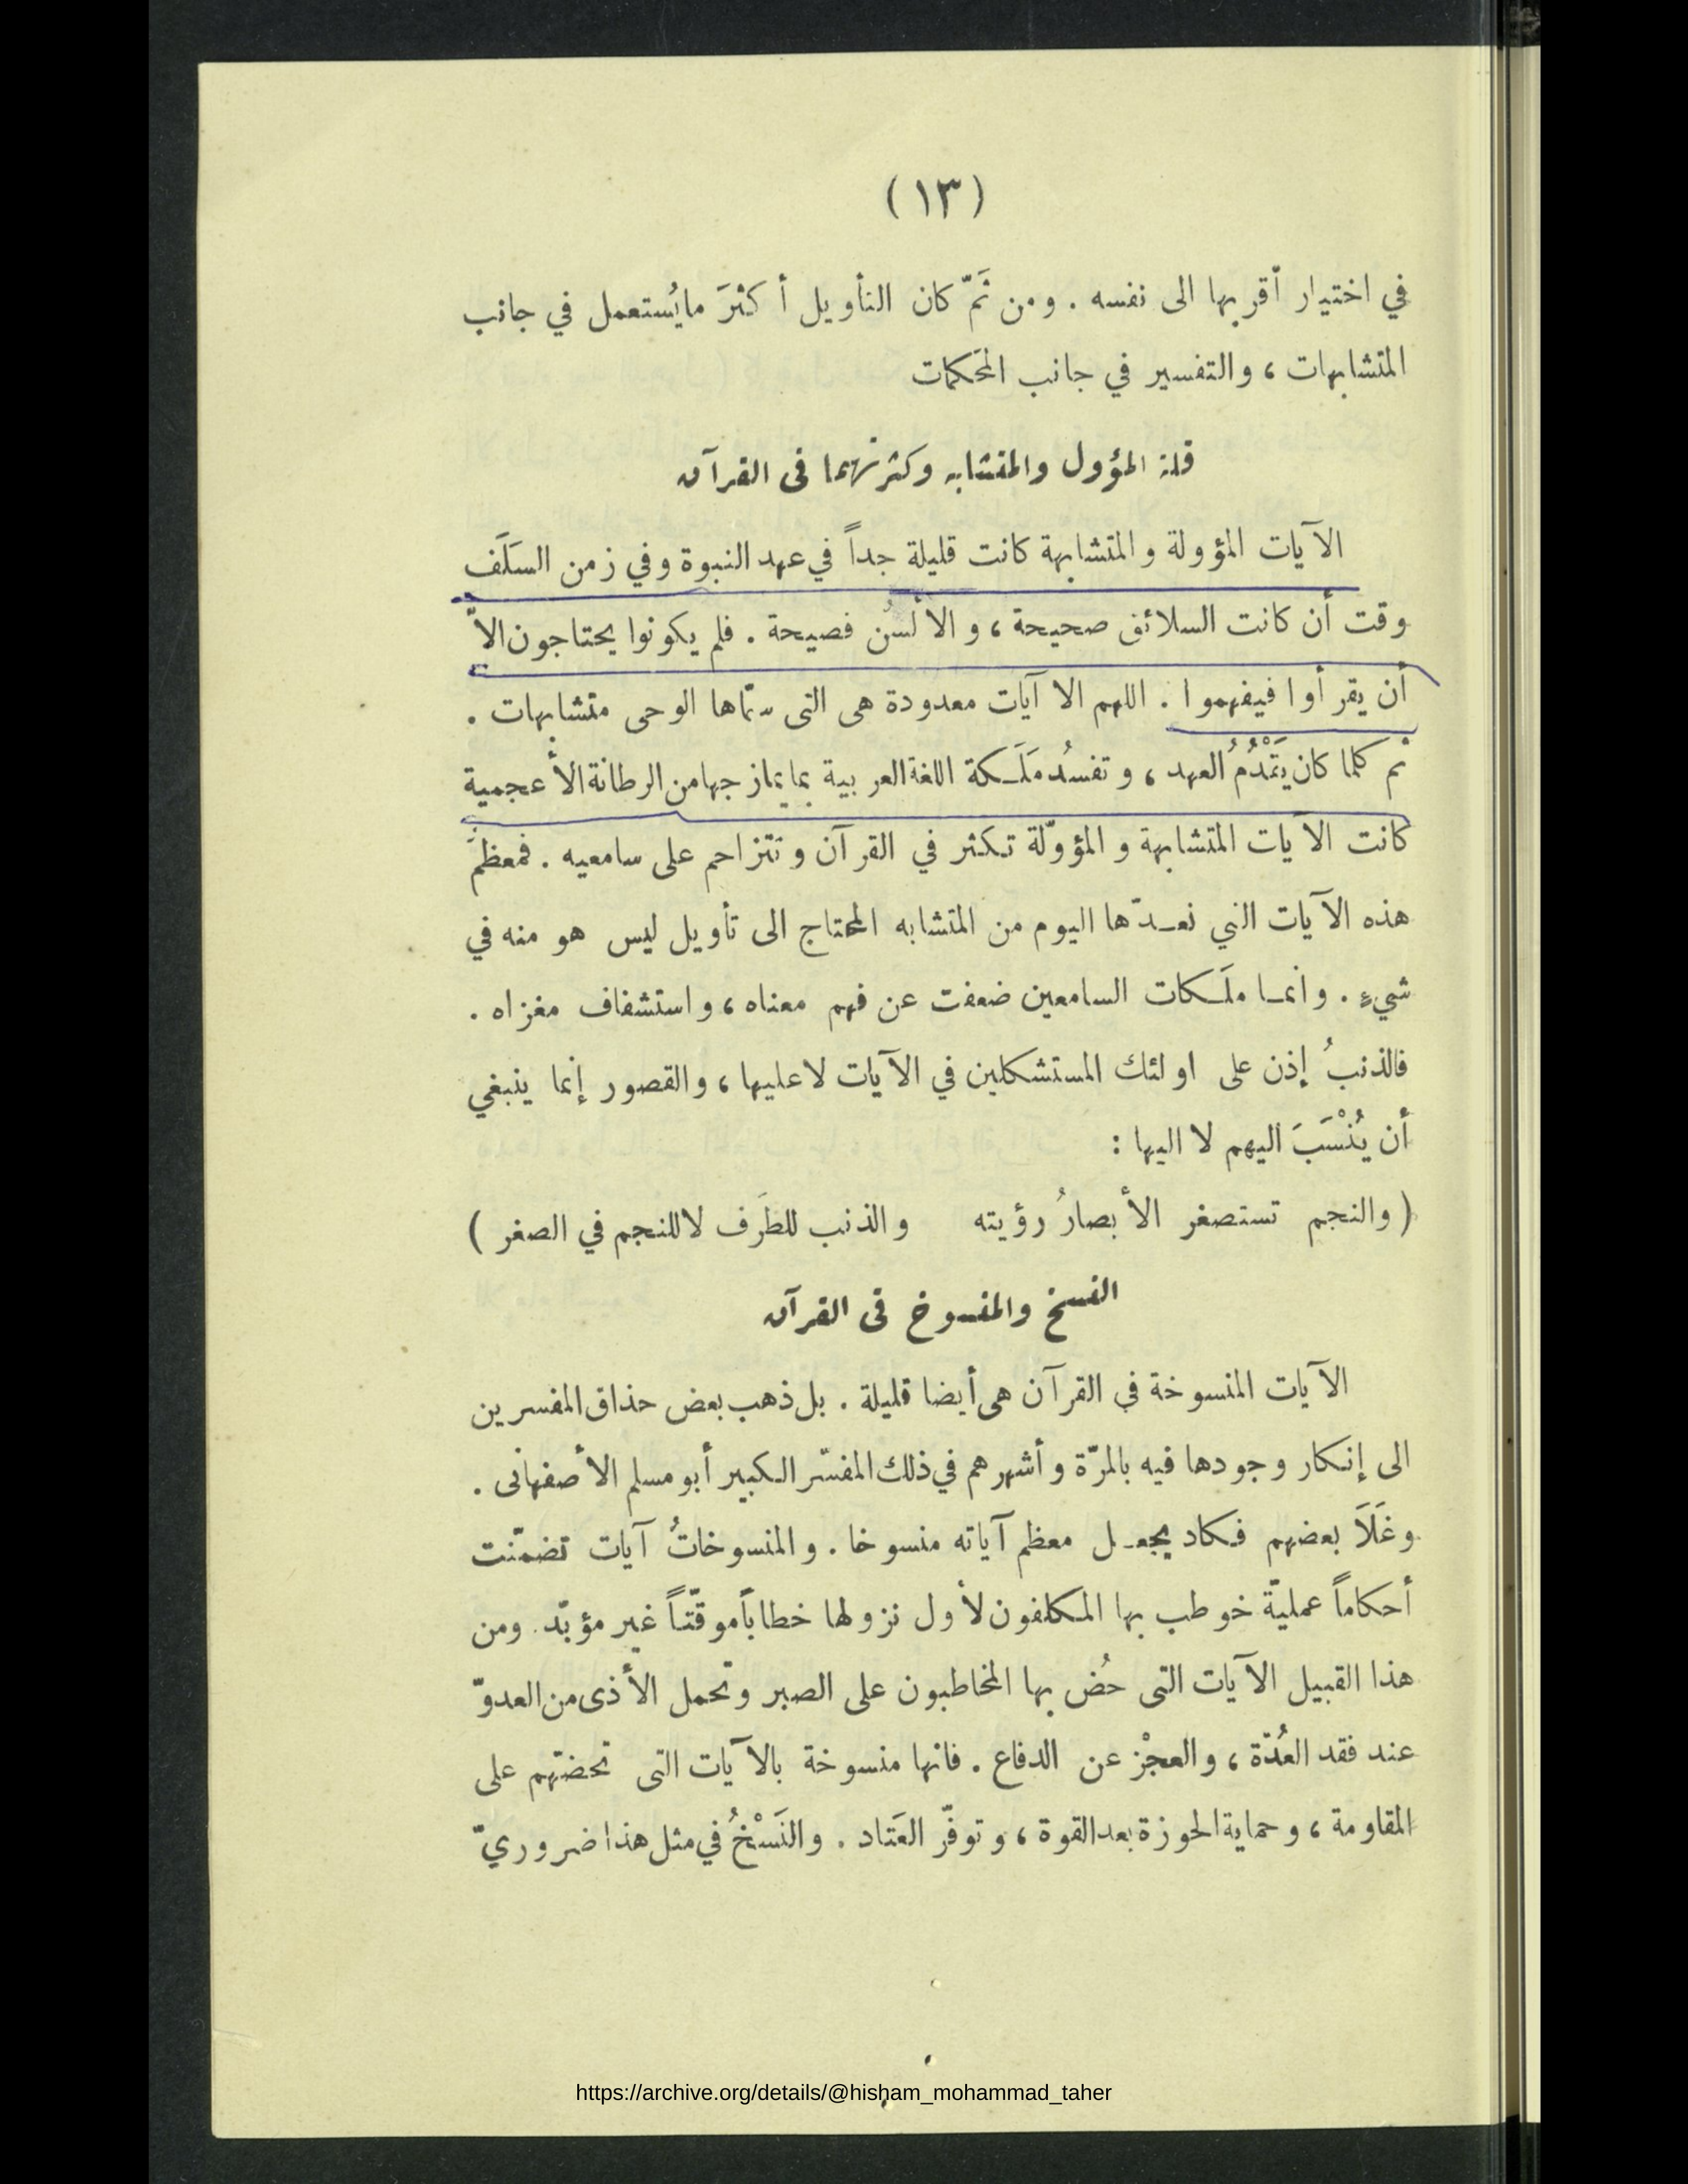 (١٣)
في اختيار أقربها الى نفسه . ومن ثَمّ كان التأويل أكثرَ مايُستعمل في جانب
المتشابهات ، والتفسير في جانب المحكمات
قلة المؤول والمتشابه وكثرتهما فى القرآن
الآيات المؤولة والمتشابهة كانت قليلة جداً في عهد النبوة وفي زمن السَلَف
وقت أن كانت السلائق صحيحة ، والألسُن فصيحة . فلم يكونوا يحتاجون الاّ
أن يقرأوا فيفهموا . اللهم الا آيات معدودة هى التى سمّاها الوحى متشابهات .
ثم كلما كان يَتَقْدُمُ العهد ، وتفسُد مَلَـكة اللغة العربية بما يمازجها من الرطانة الأعجمية
كانت الآيات المتشابهة والمؤوّلة تـكثر في القرآن وتتزاحم على سامعيه . فمعظمُ
هذه الآيات التي نعـدّها اليوم من المتشابه المحتاج الى تأويل ليس هو منه في
شيءٍ . وانمـا ملَـكات السامعين ضعفت عن فهم معناه ، واستشفاف مغزاه .
فالذنبُ إذن على اولئك المستشكلين في الآيات لا عليها ، والقصور إنما ينبغي
أن يُنْسَبَ اليهم لا اليها :
( والنجم تستصغر الأبصارُ رؤيته والذنب للطَرف لا للنجم في الصغر )
النسخ والمنسوخ فى القرآن
الآيات المنسوخة في القرآن هى أيضا قليلة . بل ذهب بعض حذاق المفسرين
الى إنـكار وجودها فيه بالمرّة وأشهرهم في ذلك المفسّر الـكبير أبو مسلم الأصفهانى .
وغَلَا بعضهم فـكاد يجعـل معظم آياته منسوخا . والمنسوخاتُ آيات تضمّنت
أحكاماً عمليّة خوطب بها المكلفون لأول نزولها خطاباً موقّتاً غير مؤبّد . ومن
هذا القبيل الآيات التى حُض بها المخاطبون على الصبر وتحمل الأذى من العدوّ
عند فقد العُدّة ، والعجْز عن الدفاع . فانها منسوخة بالآيات التى تحضّهم على
المقاومة ، وحماية الحوزة بعد القوة ، وتوفّر العَتاد . والنَسْخُ في مثل هذا ضروريّ
https://archive.org/details/@hisham_mohammad_taher